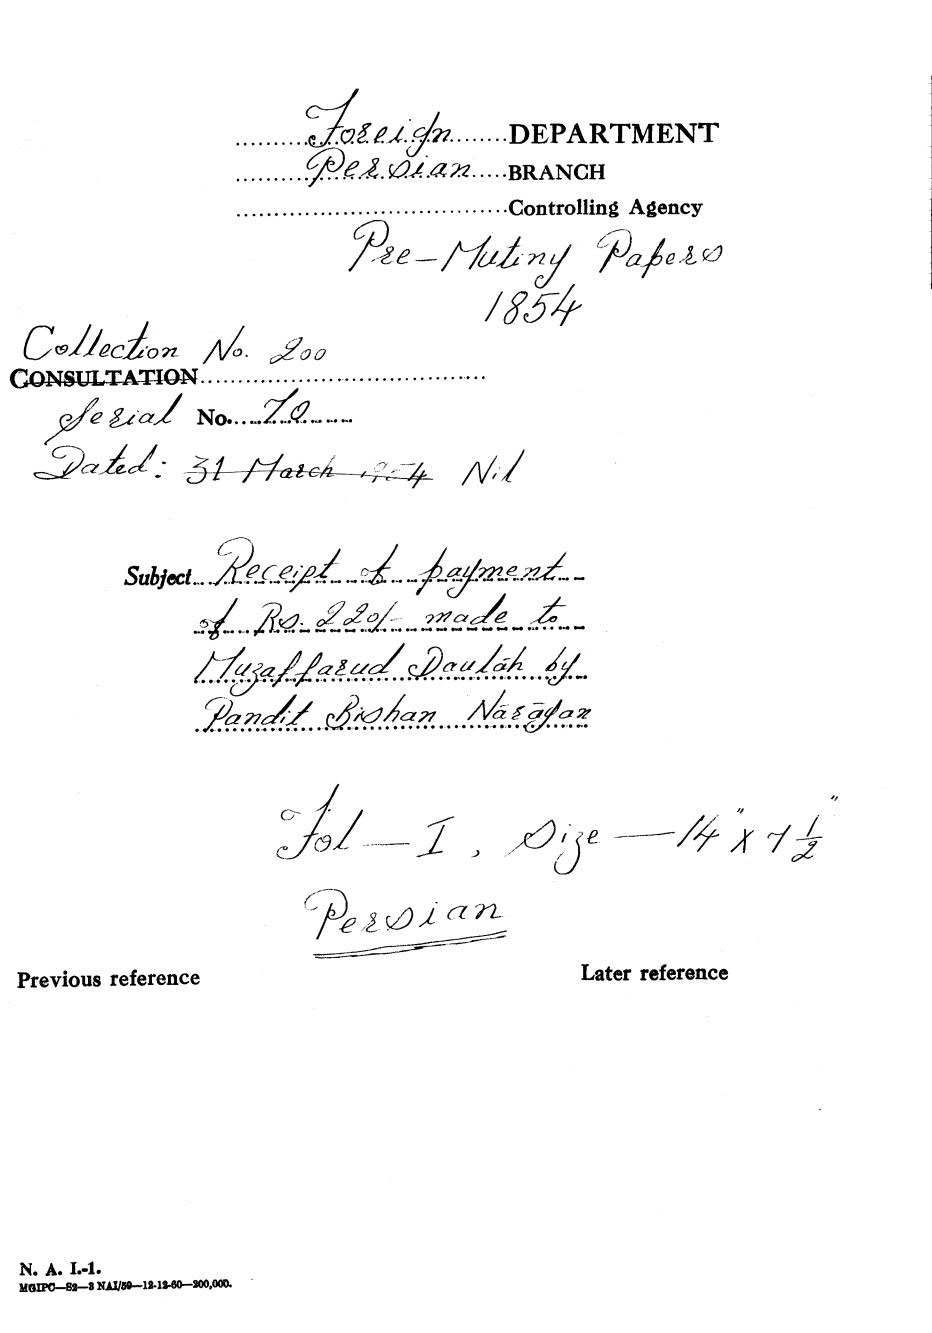 Foreign DEPARTMENT
Persian BRANCH
Controlling Agency
Pre-Mutiny Papers
1854
Collection No. 200
CONSULTATION
Serial No. 70
Dated: 31 March 1854 Nil
Subject Receipt of payment
of Rs. 220/- made to
Muzaffarud Daulāh by
Pandit Bishan Nārāyan
Fol — I, Size — 14" x 7 1/2"
Persian
Previous reference Later reference
N. A. I.-1.
MGIPC—S2—3 NAI/59—12-12-60—200,000.